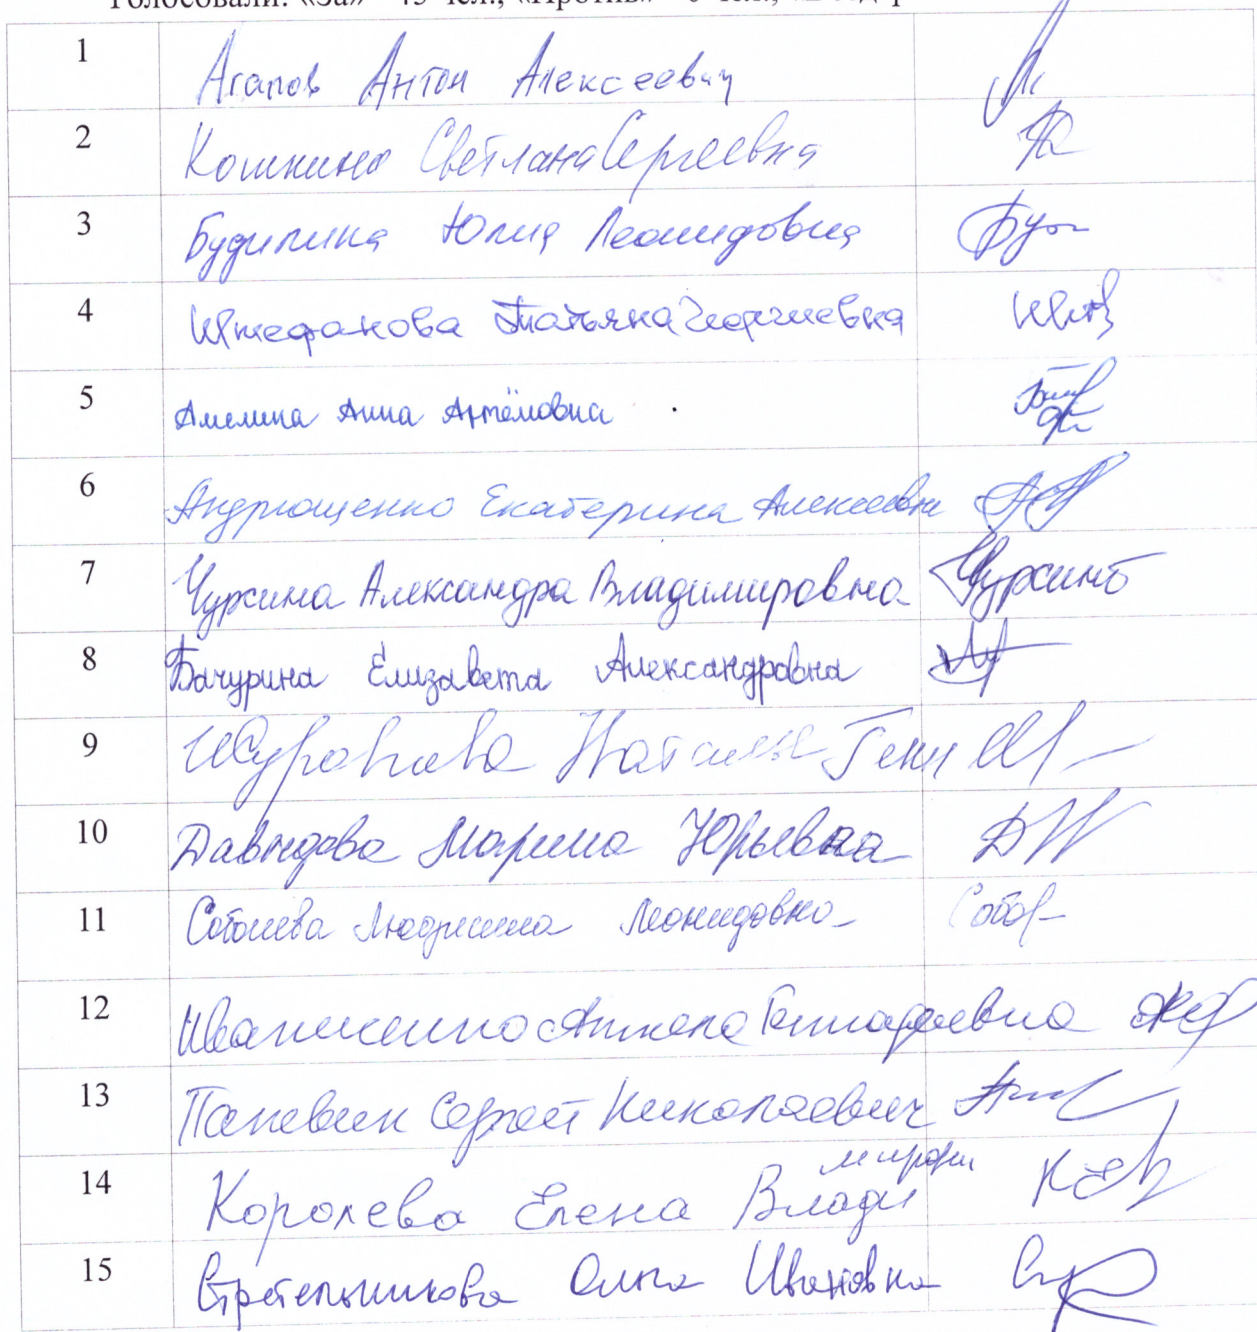 Голосовали: «За» - 45 чел., «Против» - 0 чел.,
1 Агапов Антон Алексеевич
2 Кошкина Светлана Сергеевна
3 Будилина Юлия Леонидовна
4 Штефанова Татьяна Георгиевна
5 Амелина Анна Артёмовна
6 Андрющенко Екатерина Алексеевна
7 Чурсина Александра Владимировна Чурсина
8 Бачурина Елизавета Александровна
9 Наталья Генн
10 Давыдова Марина Юрьевна
11 Соболева Людмила Леонидовна Собол
12 Иваниенко Анжела Геннадьевна
13 Паневин Сергей Николаевич
14 Королева Елена Владимировн КЕВ
15 Стретельникова Ольга Ивановна